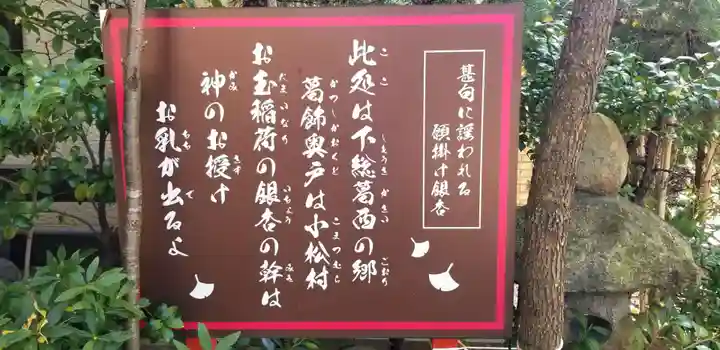 甚句に謳われる
願掛け銀杏
此処は下総葛西の郷
葛飾奥戸は小松村
お玉稲荷の銀杏の幹は
神のお授け
お乳が出るよ